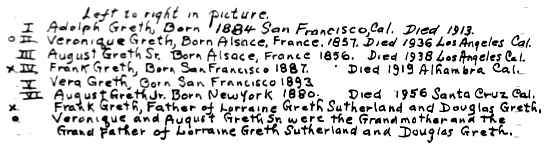 Left to right in picture.
I Adolph Greth, Born 1884 San Francisco, Cal. Died 1913.
o II Veronique Greth, Born Alsace, France. 1857. Died 1936 Los Angeles Cal.
III August Greth Sr. Born Alsace, France 1856. Died 1938 Los Angeles Cal.
x IV Frank Greth, Born San Francisco 1887. Died 1919 Alhambra Cal.
V Vera Greth, Born San Francisco 1893
VI August Greth Jr. Born New York 1880. Died 1956 Santa Cruz Cal.
x Frank Greth, Father of Lorraine Greth Sutherland and Douglas Greth.
o Veronique and August Greth Sr. were the Grandmother and the
Grand Father of Lorraine Greth Sutherland and Douglas Greth.